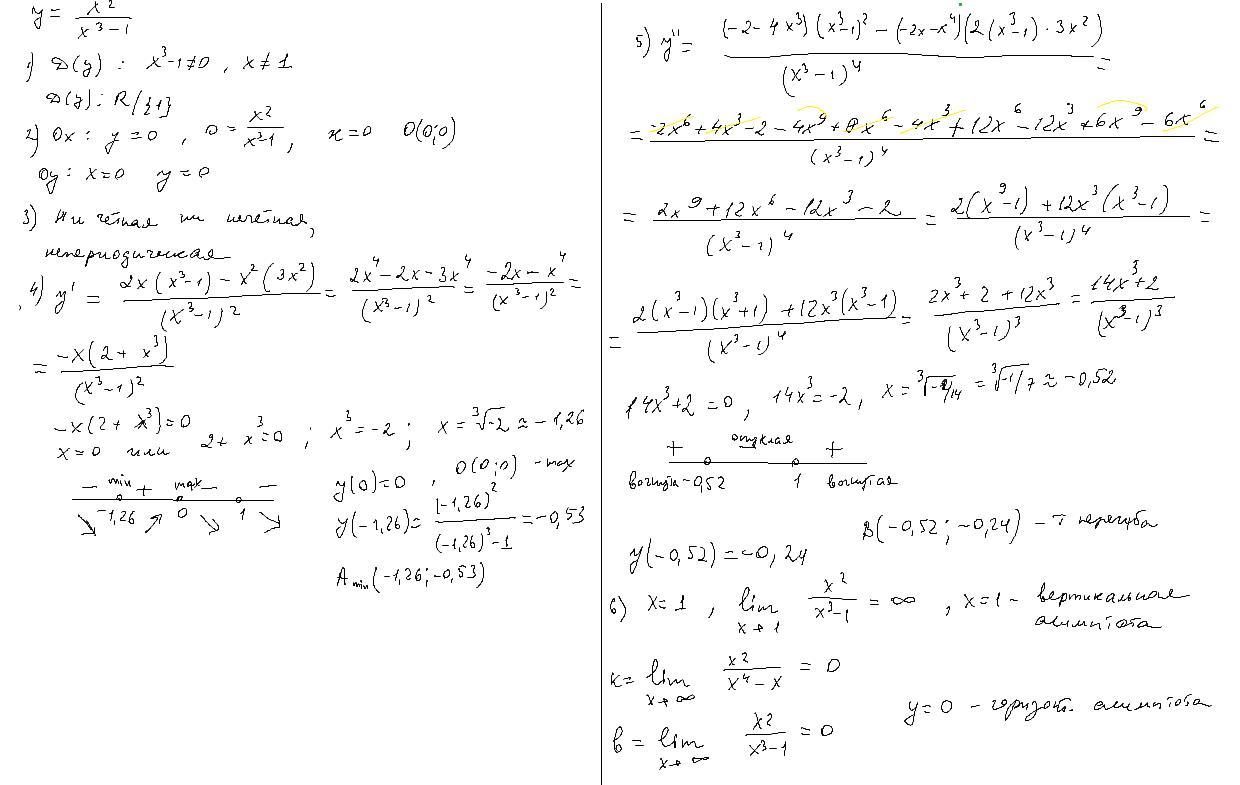 y = x²/(x³−1)
1) D(y) : x³−1≠0 , x≠1
D(y): R/{1}
2) Ox : y=0 , 0 = x²/(x³−1) , x=0 O(0;0)
Oy : x=0 y=0
3) Ни чётная ни нечётная,
непериодическая
4) y' = (2x(x³−1) − x²(3x²))/(x³−1)² = (2x⁴−2x−3x⁴)/(x³−1)² = (−2x−x⁴)/(x³−1)² =
= −x(2+x³)/(x³−1)²
−x(2+x³)=0
x=0 или 2+x³=0 ; x³=−2 ; x=∛−2 ≈ −1,26
− min + max − −
−1,26 0 1
y(0)=0 , O(0;0) − max
y(−1,26)= (−1,26)²/((−1,26)³−1) = −0,53
A min (−1,26; −0,53)
5) y'' = ((−2−4x³)(x³−1)² − (−2x−x⁴)(2(x³−1)·3x²))/(x³−1)⁴ =
= (−2x⁶+4x³−2−4x⁹+8x⁶−4x³+12x⁶−12x³+6x⁹−6x⁶)/(x³−1)⁴ =
= (2x⁹+12x⁶−12x³−2)/(x³−1)⁴ = (2(x⁹−1)+12x³(x³−1))/(x³−1)⁴ =
= (2(x³−1)(x³+1)+12x³(x³−1))/(x³−1)⁴ = (2x³+2+12x³)/(x³−1)³ = (14x³+2)/(x³−1)³
14x³+2=0 , 14x³=−2 , x=∛−2/14 = ∛−1/7 ≈ −0,52
+ выпуклая +
вогнутая −0,52 1 вогнутая
y(−0,52)=−0,24 B(−0,52; −0,24) − т перегиба
6) x=1 , lim x→1 x²/(x³−1) = ∞ , x=1 − вертикальная
асимптота
k = lim x→∞ x²/(x⁴−x) = 0
y=0 − горизонт. асимптота
b = lim x→∞ x²/(x³−1) = 0